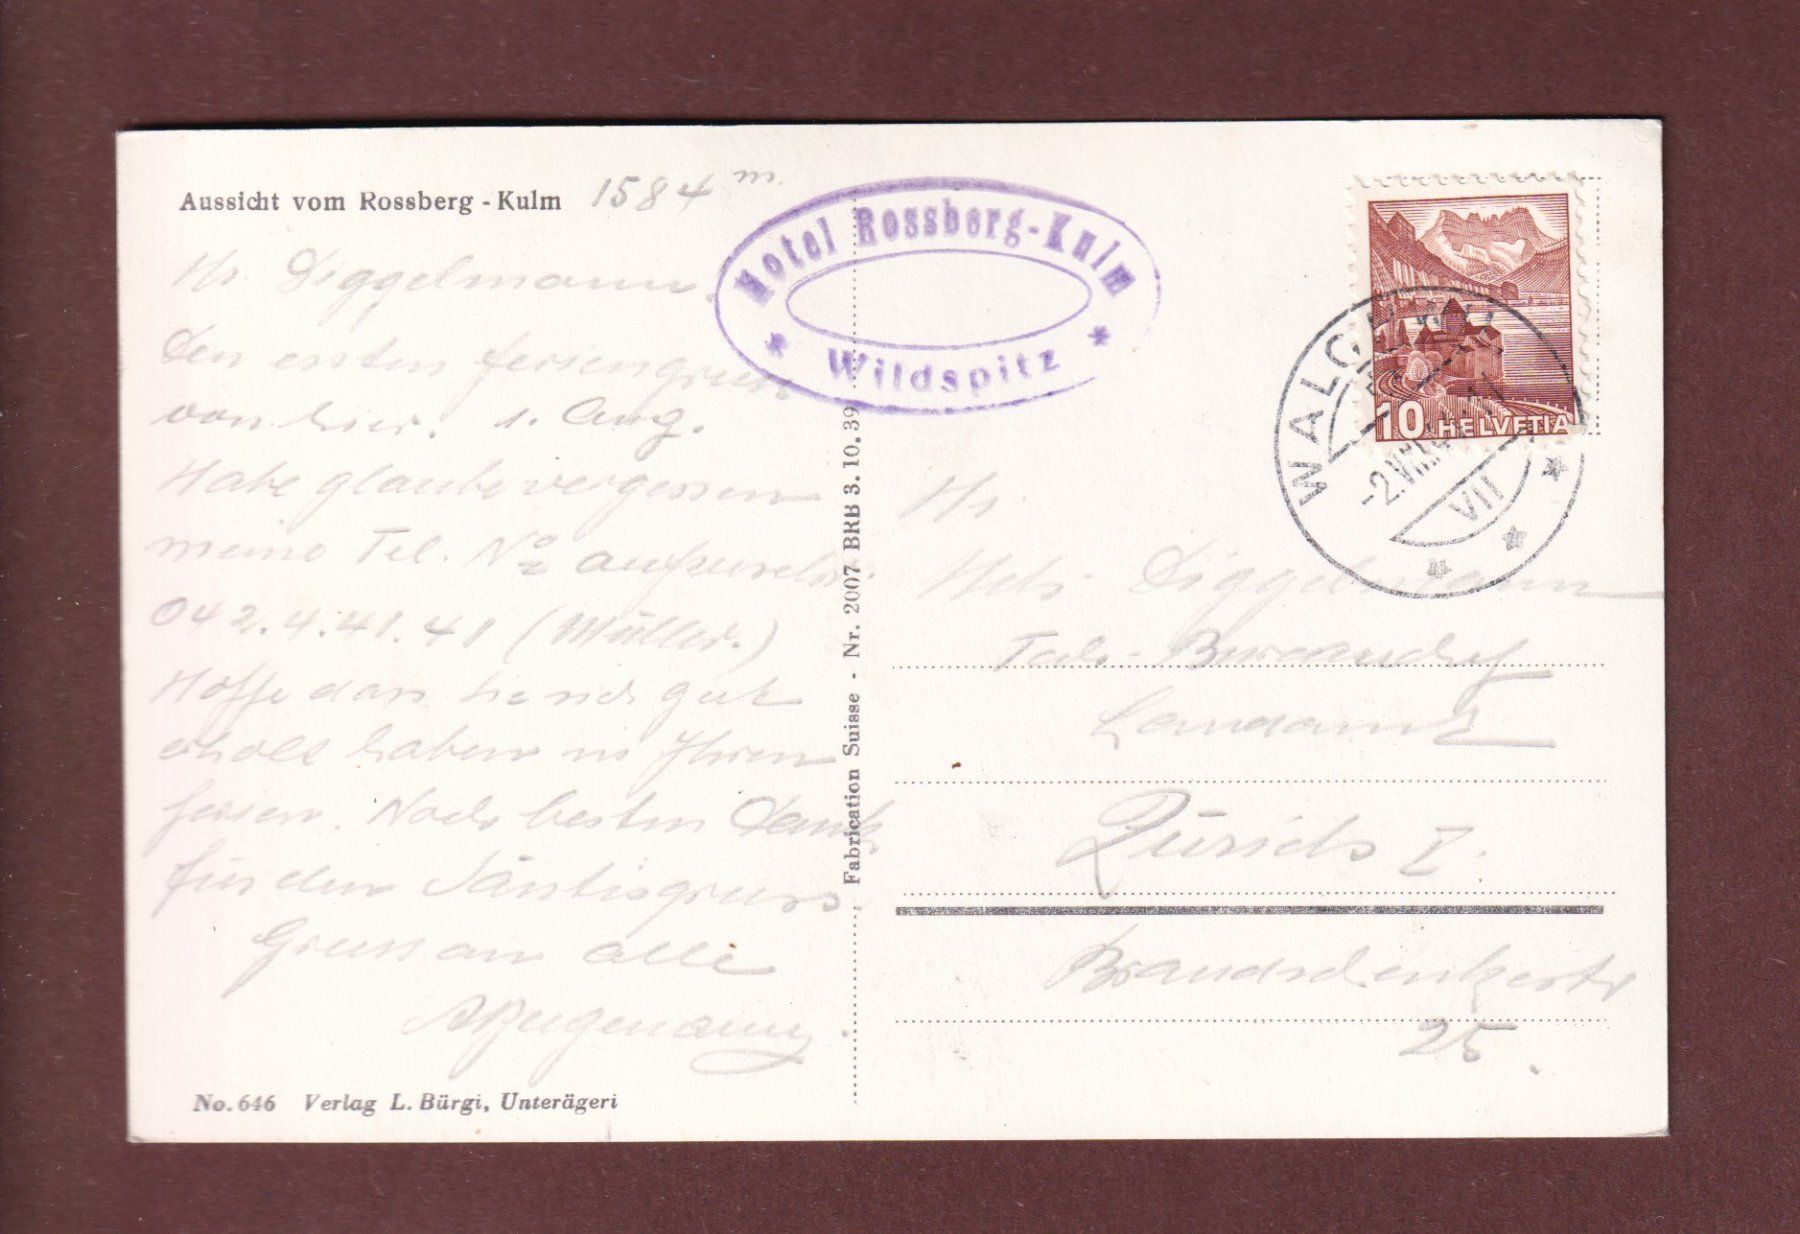 Aussicht vom Rossberg-Kulm 1584 m.
Hr. Diggelmann.
Den ersten Feriengruss
von hier. 1. Aug.
Habe glaube vergessen
meine Tel. No
042.4.41.41 (Müller.)
Hoffe dass Sie sich gut
erholt haben in Ihren
Ferien. Noch besten Dank
für den Säntisgruss
Gruss an alle
No. 646 Verlag L. Bürgi, Unterägeri
Fabrication Suisse - Nr. 2007 BRB 3.10.39
Hotel Rossberg-Kulm
* Wildspitz *
10 HELVETIA
-2.VIII
VII
Hr.
Diggelmann
Landamt
Zürich I.
Brandschenkestr
25.